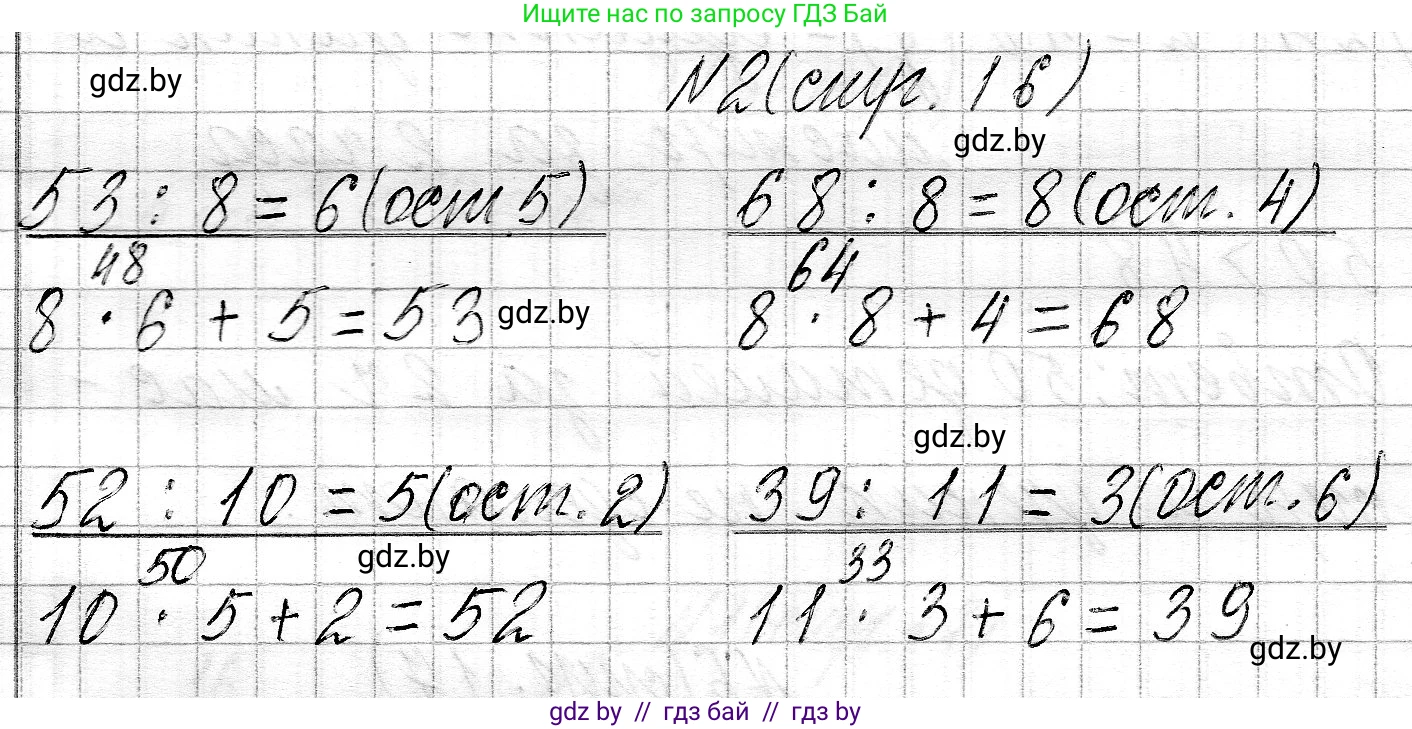 Ищите нас по запросу ГДЗ Бай
gdz.by
№2(стр. 16)
gdz.by
53 : 8 = 6(ост 5)
68 : 8 = 8(ост. 4)
48
64
8 · 6 + 5 = 53
gdz.by
8 · 8 + 4 = 68
gdz.by
52 : 10 = 5(ост. 2)
39 : 11 = 3(ост. 6)
50
gdz.by
33
10 · 5 + 2 = 52
11 · 3 + 6 = 39
gdz.by
gdz by // гдз бай // гдз by